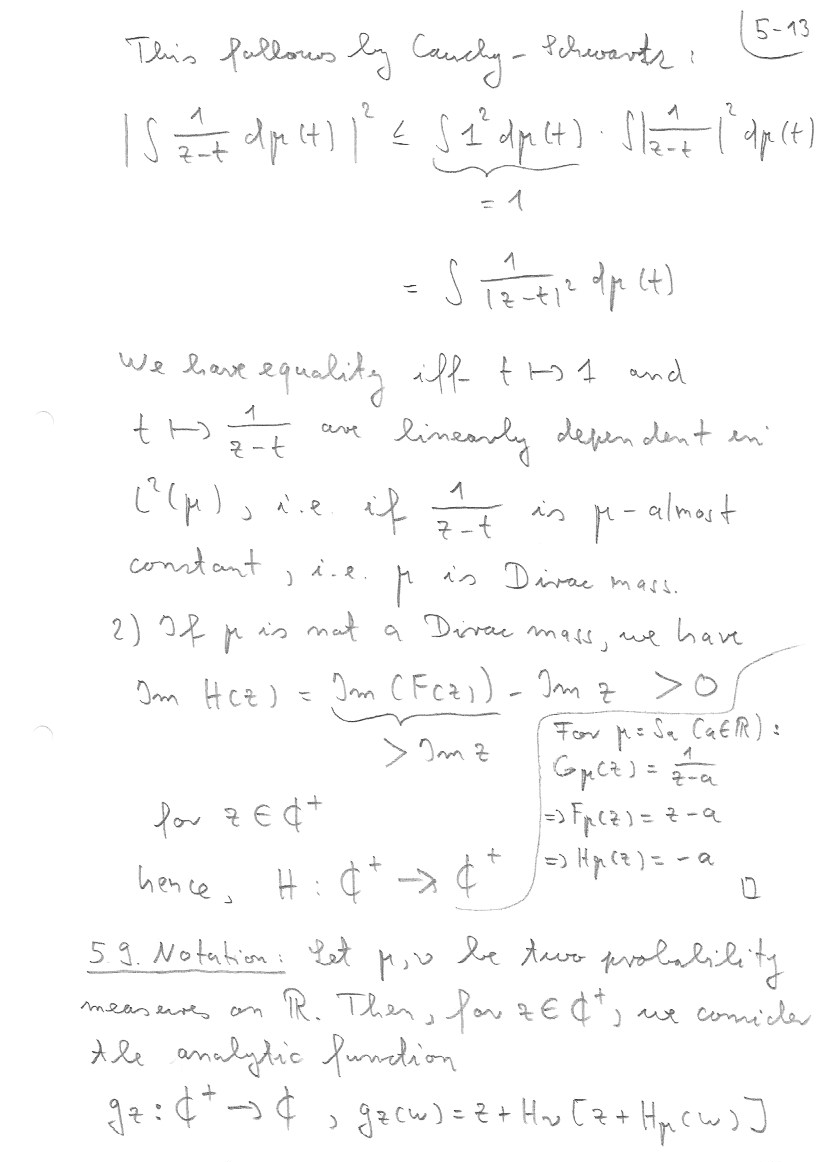 5-13
This follows by Cauchy-Schwartz:
|∫ 1/(z-t) dμ(t)|² ≤ ∫1² dμ(t) · ∫|1/(z-t)|² dμ(t)
= 1
= ∫ 1/|z-t|² dμ(t)
We have equality iff t ↦ 1 and
t ↦ 1/(z-t) are linearly dependent in
L²(μ), i.e. if 1/(z-t) is μ-almost
constant, i.e. μ is Dirac mass.
2) If μ is not a Dirac mass, we have
Im H(z) = Im(F(z)) - Im z > 0
> Im z
for z ∈ ℂ⁺
hence, H : ℂ⁺ → ℂ⁺
For μ = δₐ (a∈ℝ):
Gμ(z) = 1/(z-a)
⇒ Fμ(z) = z-a
⇒ Hμ(z) = -a
□
5.9. Notation: Let μ, ν be two probability
measures on ℝ. Then, for z ∈ ℂ⁺, we consider
the analytic function
g_z : ℂ⁺ → ℂ , g_z(w) = z + H_ν[z + H_μ(w)]